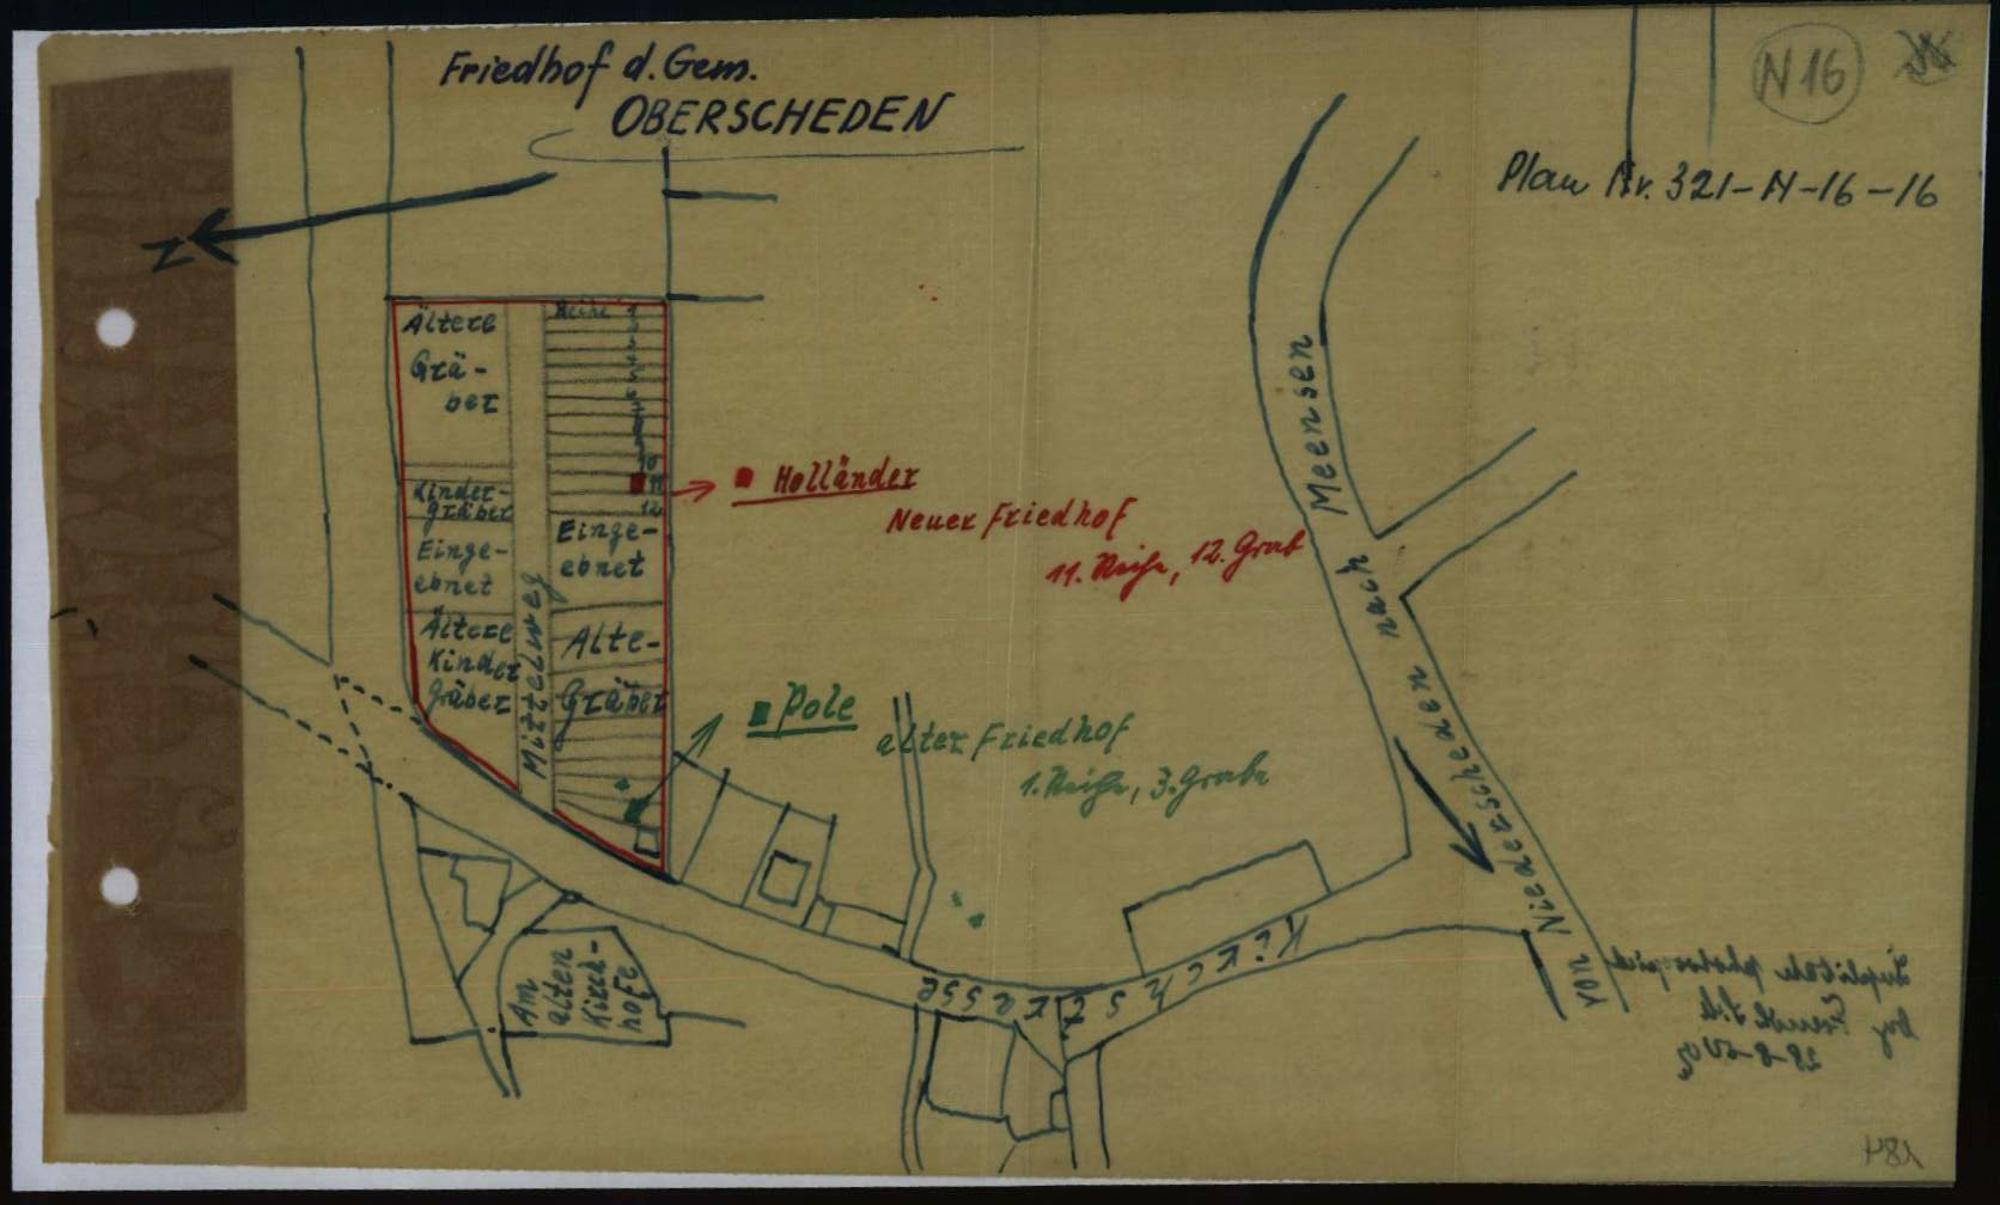 Friedhof d. Gem.
OBERSCHEDEN
N 16
Plan Nr. 321-N-16-16
N
Ältere
Grä-
ber
Kinder-
gräber
Einge-
ebnet
Ältere
Kinder
gräber
Mittelweg
Reihe 1
2
3
4
5
6
10
11
12
Einge-
ebnet
Alte-
Gräber
Holländer
Neuer Friedhof
11. Reihe, 12. Grab
Pole
alter Friedhof
1. Reihe, 3. Grabe
Am
alten
Kirch-
hofe
Kirchstrasse
von Niederscheden nach Meensen
184